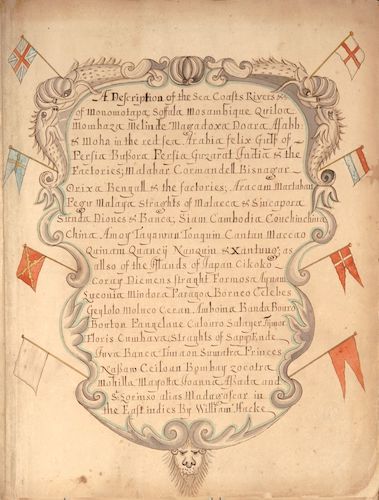 A Description of the Sea Coasts Rivers &c
of Monomotapa Sofula Mosambique Quiloa
Mombaza Melinde Magadoxa Doara Assabb:
& Moha in the red sea Arabia felix Gulf of
Persia Bussora Persia Guzarat India & the
Factories; Malabar Cormandell Bisnagar
Orixa Bengall & the factories; Aracam Martaban
Pegu Malaya Straghts of Malacca & Sincapora
Sunda Diones & Banca; Siam Cambodia Couchinchina
China Amoy Taywan Tonquin Cantan Maccao
Quinam Quancij Nanquin & Xantung; as
allso of the Ilands of Iapan Cikoko
Coray Diemens straght Formosa Aynam
Luconia Mindora Paragoa Borneo Celebes
Geylolo Moluco Ceran Amboina Banda Bouro
Bouton Pangelane Calouro Salayer Tymor
Floris Cumbava Straghts of Sapy Ende
Iava Banca Timaon Sumatra Princes
Nassaw Ceiloan Bombay zocotra
Mohilla Mayotta Ioanna Assada and
St Lorinso alias Madagascar in
the East indies By William Hacke